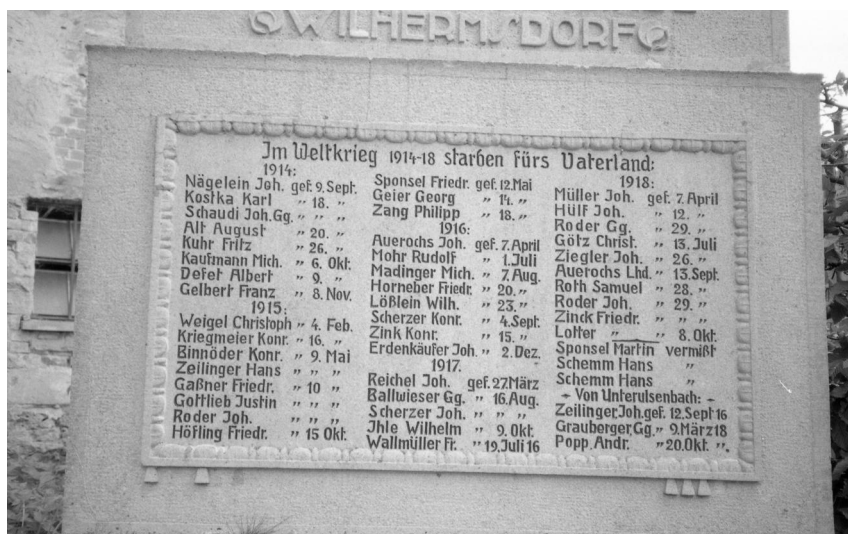 WILHERMSDORF
Im Weltkrieg 1914-18 starben fürs Vaterland:
1914:
Nägelein Joh. gef. 9. Sept.
Kostka Karl „ 18. „
Schaudi Joh. Gg. „ „ „
Alt August „ 20. „
Kuhr Fritz „ 26. „
Kaufmann Mich. „ 6. Okt.
Defet Albert „ 9. „
Gelbert Franz „ 8. Nov.
1915:
Weigel Christoph „ 4. Feb.
Kriegmeier Konr. „ 16. „
Binnöder Konr. „ 9. Mai
Zeilinger Hans „ „ „
Gaßner Friedr. „ 10 „
Gottlieb Justin „ „ „
Roder Joh. „ „ „
Höfling Friedr. „ 15 Okt.
Sponsel Friedr. gef. 12. Mai
Geier Georg „ 14. „
Zang Philipp „ 18. „
1916:
Auerochs Joh. gef. 7. April
Mohr Rudolf „ 1. Juli
Madinger Mich. „ 7. Aug.
Horneber Friedr. „ 20. „
Lößlein Wilh. „ 23. „
Scherzer Konr. „ 4. Sept.
Zink Konr. „ 15. „
Erdenkäufer Joh. „ 2. Dez.
1917.
Reichel Joh. gef. 27. März
Ballwieser Gg. „ 16. Aug.
Scherzer Joh. „ „ „
Ihle Wilhelm „ 9. Okt.
Wallmüller Fr. „ 19. Juli 16
1918:
Müller Joh. gef. 7. April
Hülf Joh. „ 12. „
Roder Gg. „ 29. „
Götz Christ. „ 13. Juli
Ziegler Joh. „ 26. „
Auerochs Lhd. „ 13. Sept.
Roth Samuel „ 28. „
Roder Joh. „ 29. „
Zinck Friedr. „ „ „
Lotter „ „ 8. Okt.
Sponsel Martin vermißt
Schemm Hans „
Schemm Hans „
- Von Unterulsenbach: -
Zeilinger, Joh. gef. 12. Sept 16
Grauberger, Gg. „ 9. März 18
Popp Andr. „ 20. Okt. „.